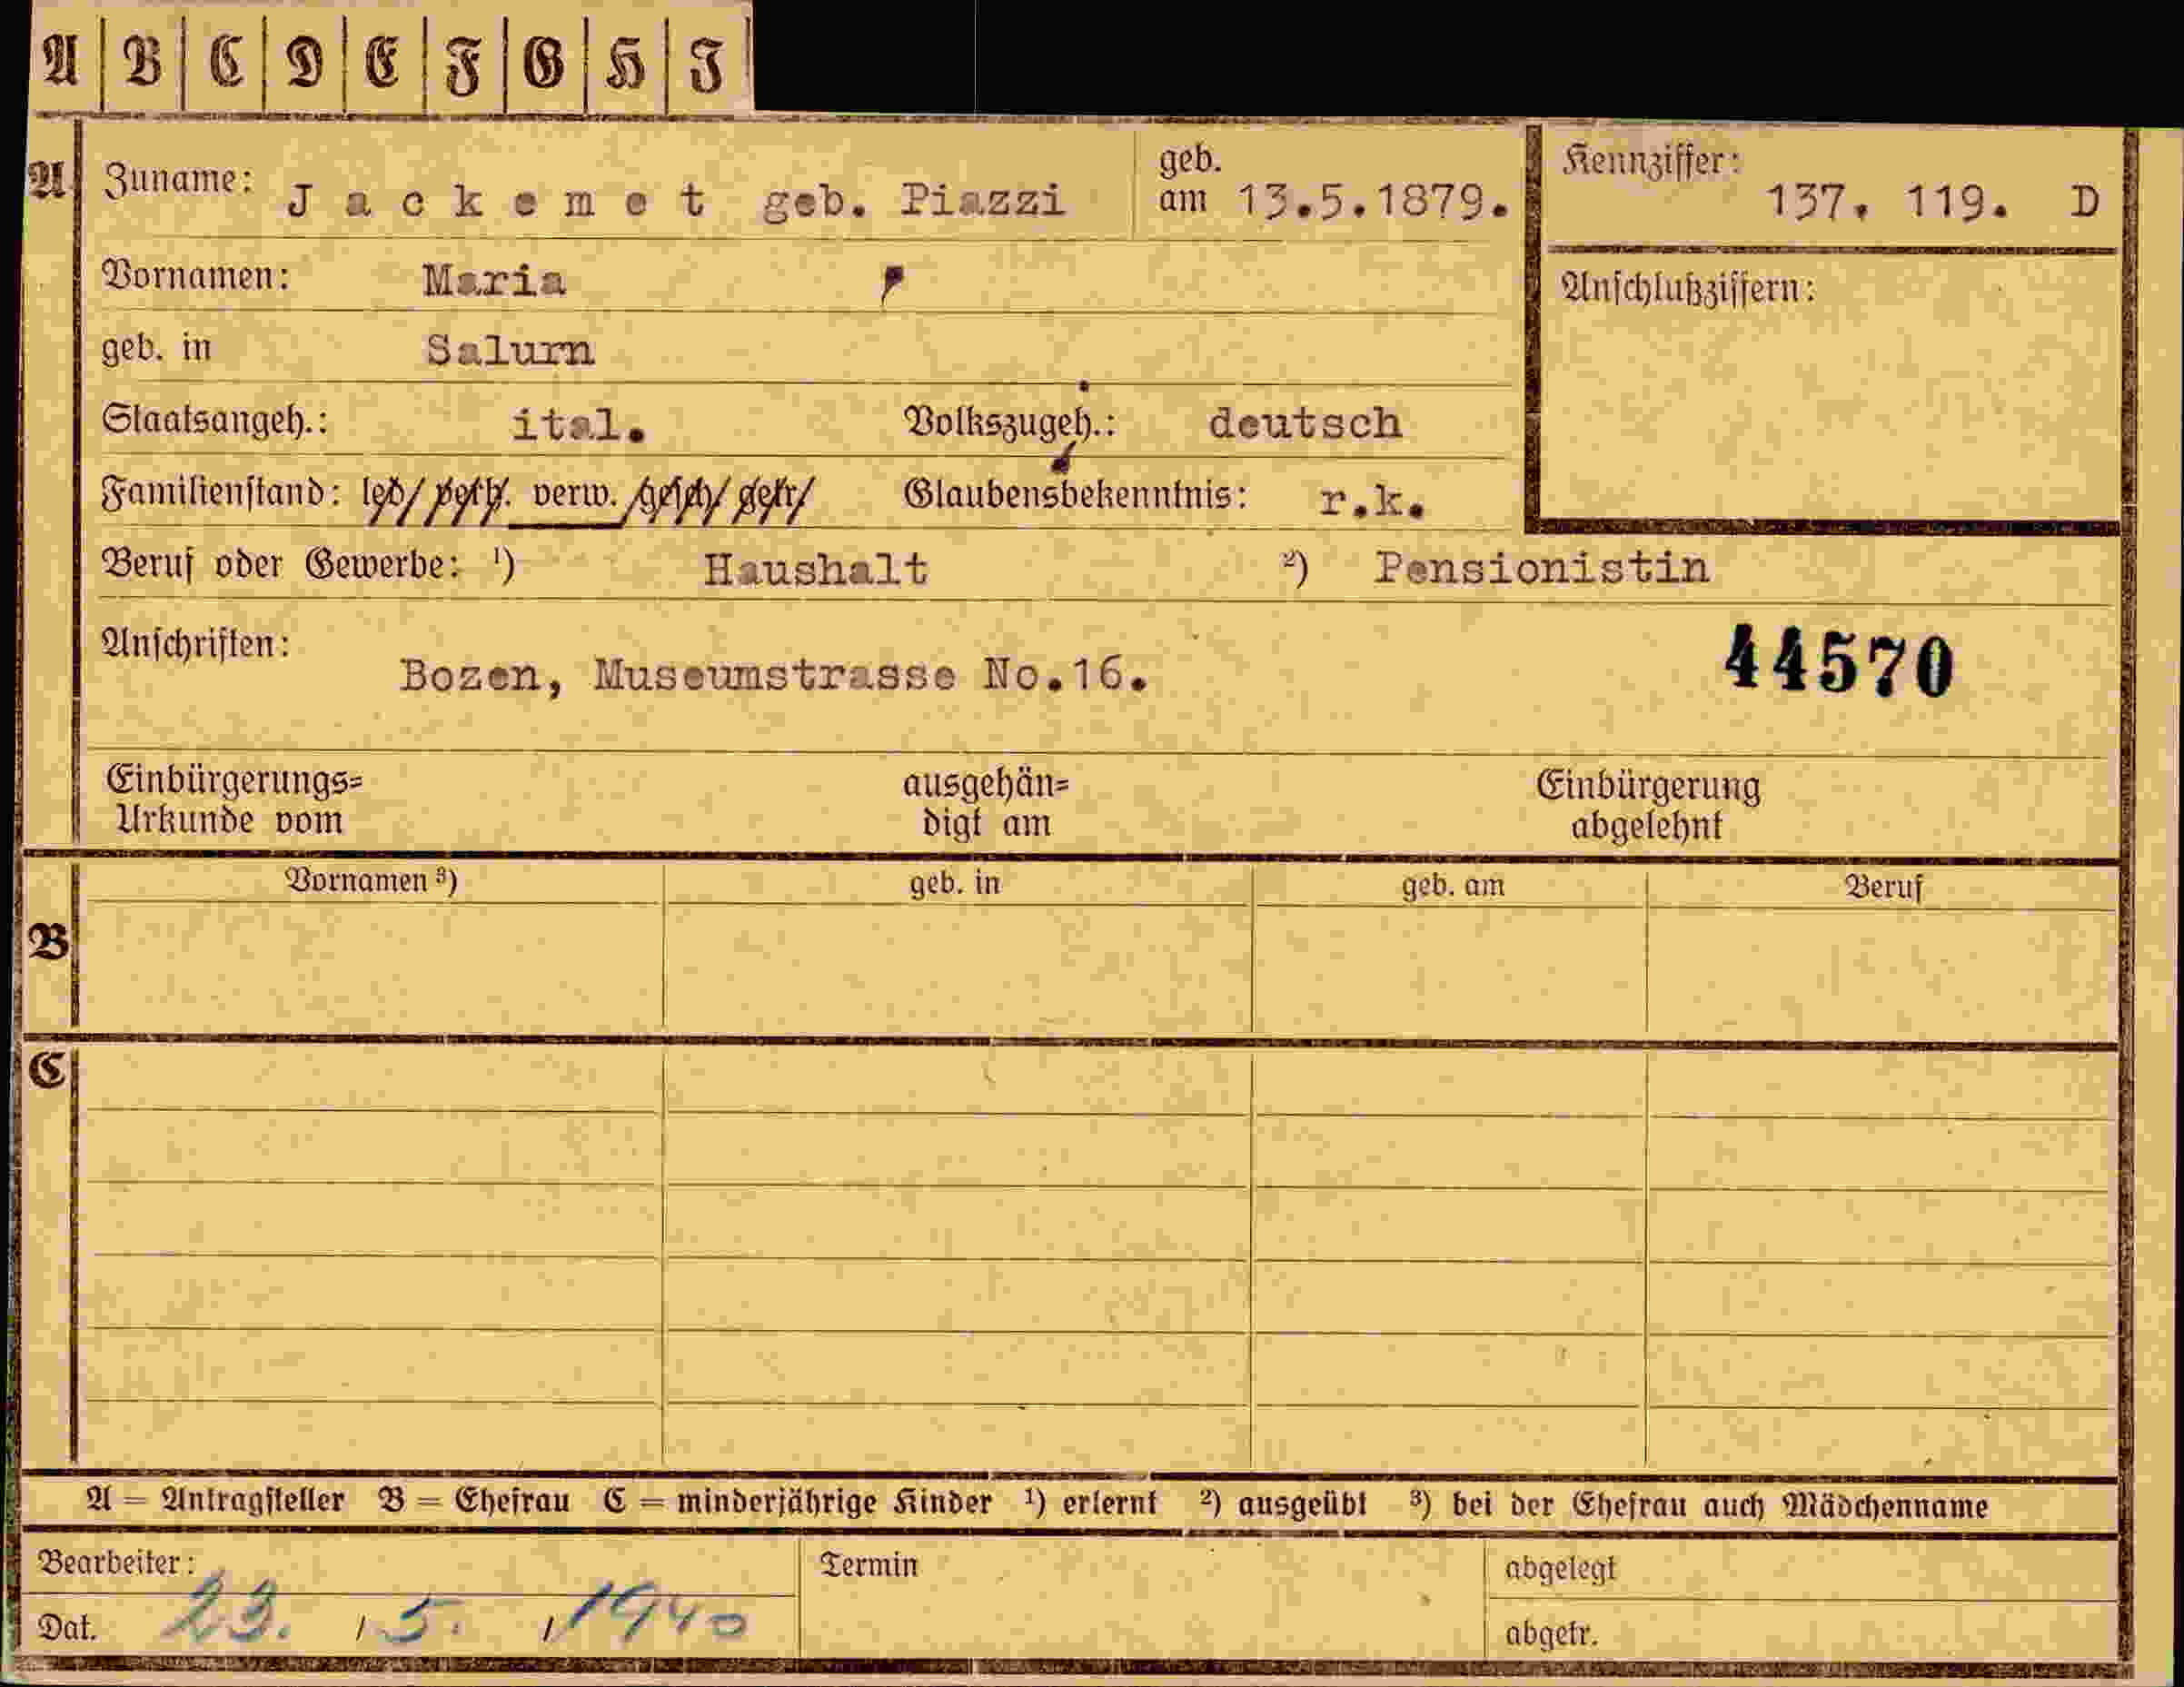 A B C D E F G H I
A Zuname: Jackemet geb. Piazzi geb. am 13.5.1879. Kennziffer: 137. 119. D
Vornamen: Maria Anschlußziffern:
geb. in Salurn
Staatsangeh.: ital. Volkszugeh.: deutsch
Familienstand: led/ verh. verw. /gesch/ getr/ Glaubensbekenntnis: r.k.
Beruf oder Gewerbe: ¹) Haushalt ²) Pensionistin
Anschriften: Bozen, Museumstrasse No.16. 44570
Einbürgerungs= ausgehän= Einbürgerung
Urkunde vom digt am abgelehnt
Vornamen ³) geb. in geb. am Beruf
B
C
A = Antragsteller B = Ehefrau C = minderjährige Kinder ¹) erlernt ²) ausgeübt ³) bei der Ehefrau auch Mädchenname
Bearbeiter: Termin abgelegt
Dat. 23. / 5. / 1940 abgetr.